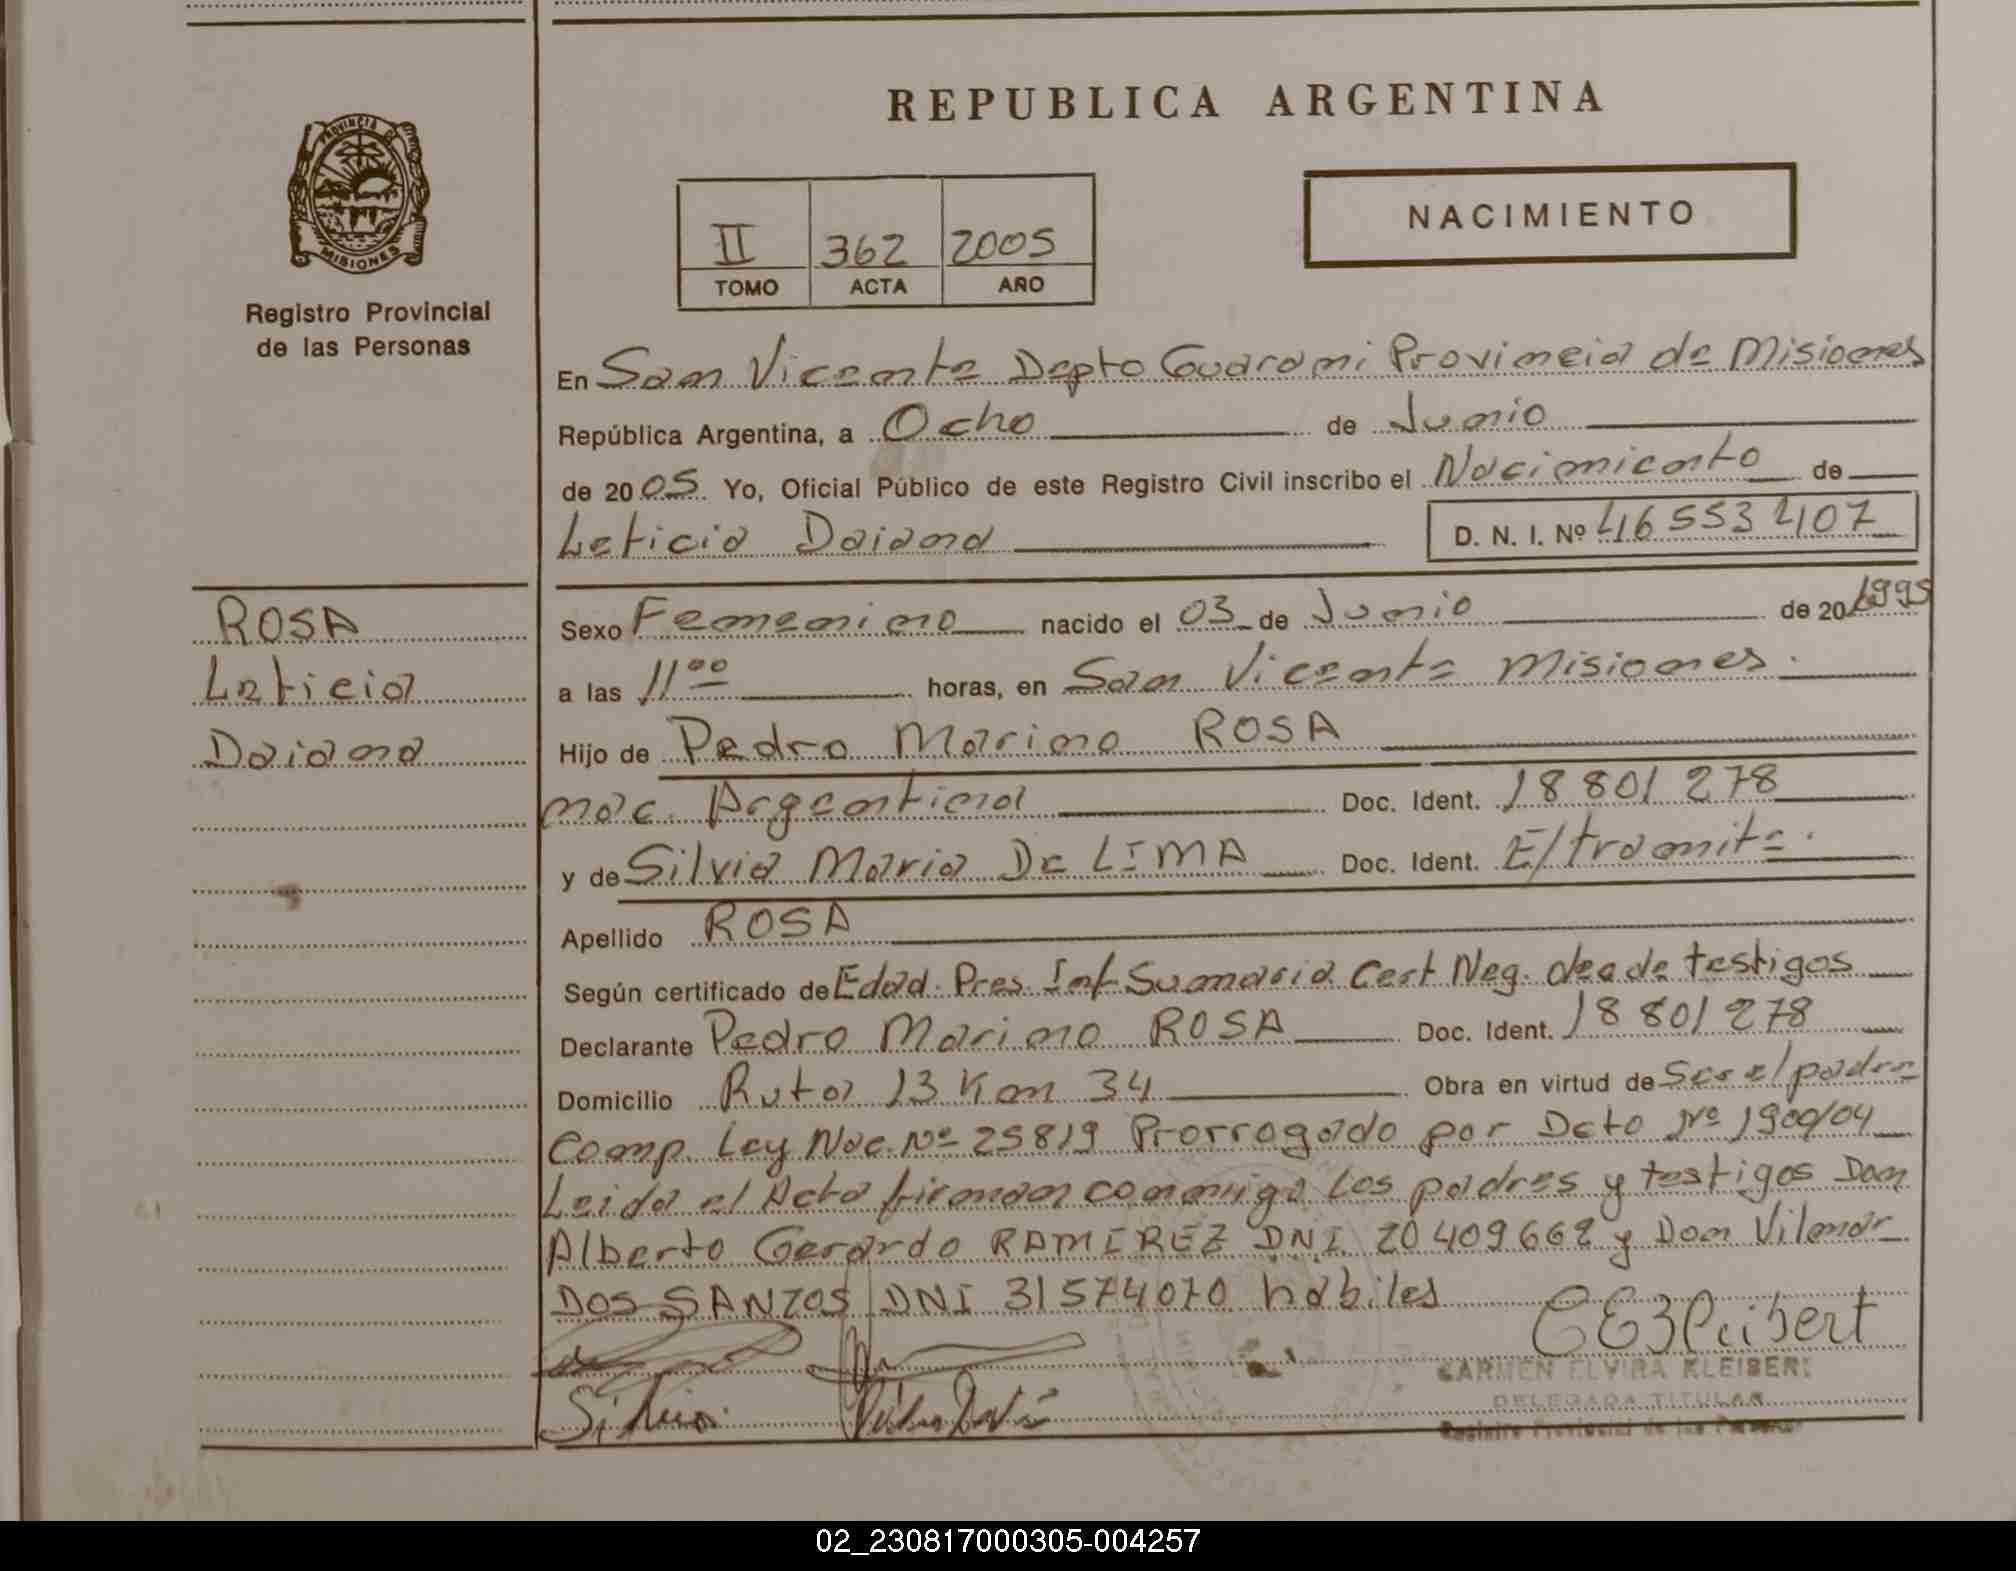 REPUBLICA ARGENTINA
PROVINCIA DE
MISIONES
Registro Provincial
de las Personas
II 362 2005
TOMO ACTA AÑO
NACIMIENTO
En San Vicente Depto Guarani Provincia de Misiones
República Argentina, a Ocho de Junio
de 2005 Yo, Oficial Público de este Registro Civil inscribo el Nacimiento de
Leticia Daiana D. N. I. Nº 46 553 407
ROSA
Leticia
Daiana
Sexo Femenino nacido el 03 de Junio de 20 1995
a las 11 00 horas, en San Vicente Misiones.
Hijo de Pedro Marino ROSA
nac. Argentina Doc. Ident. 18 801 278
y de Silvia Maria De LIMA Doc. Ident. E/tramite.
Apellido ROSA
Según certificado de Edad. Pres. Inf Sumaria Cert Neg. dea de testigos
Declarante Pedro Marino ROSA Doc. Ident. 18 801 278
Domicilio Ruta 13 Km 34 Obra en virtud de Ser el padre
Comp. Ley Nac. Nº 25819 Prorrogado por Dcto Nº 1900/04
Leida el Acta firman conmigo los padres y testigos Don
Alberto Gerardo RAMIREZ DNI 20 409 662 y Don Vilmar
DOS SANTOS DNI 31 574 070 habiles
CARMEN ELVIRA KLEIBERT
DELEGADA TITULAR
Registro Provincial de las Personas
Silvia
02_230817000305-004257